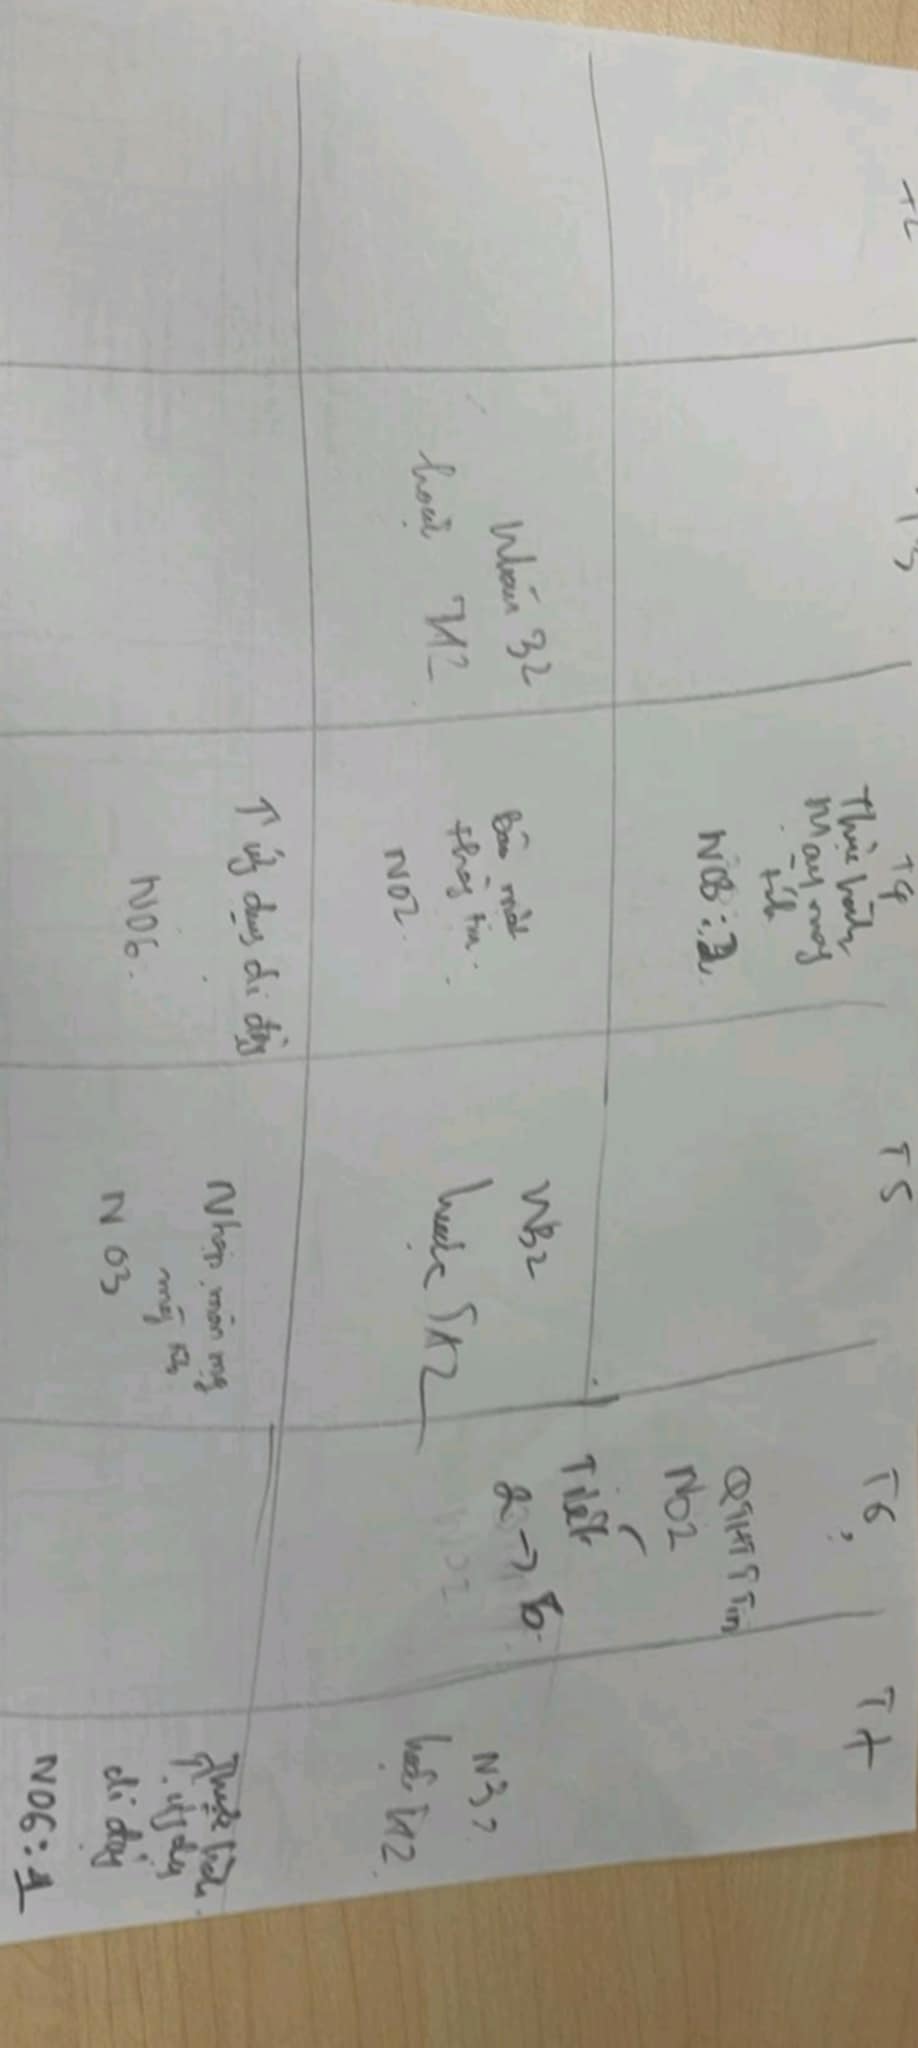 T2
T3
T4
T5
T6
T7
Thực hành
Mạng máy
tính
N03:2
QTHTTTin
N02
Tiết
2 → 5
Nhóm 32
hoặc
Bảo mật
thông tin
N02
N32
hoặc
N32
hoặc
T ứng dụng di động
N06.
Nhập môn mạng
máy tính
N03
Thực hành
T. ứng dụng
di động
N06:1